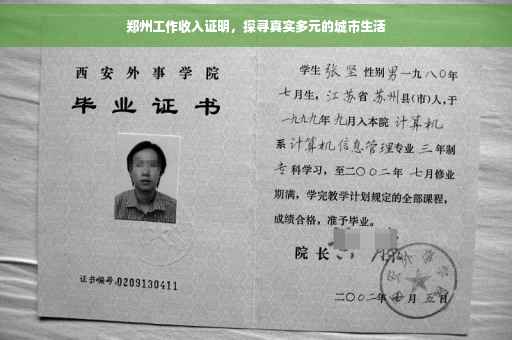 郑州工作收入证明，探寻真实多元的城市生活
西安外事学院
毕业证书
证书编号:0209130411
学生 张坚 性别 男 一九八〇年
七月生，江苏省 苏州县(市)人，于
一九九九年 九月入本院 计算机
系 计算机信息管理专业 三 年制
专 科学习，至二〇〇二年 七月修业
期满，学完教学计划规定的全部课程，
成绩合格，准予毕业。
院 长
二〇〇二年 七 月 五 日